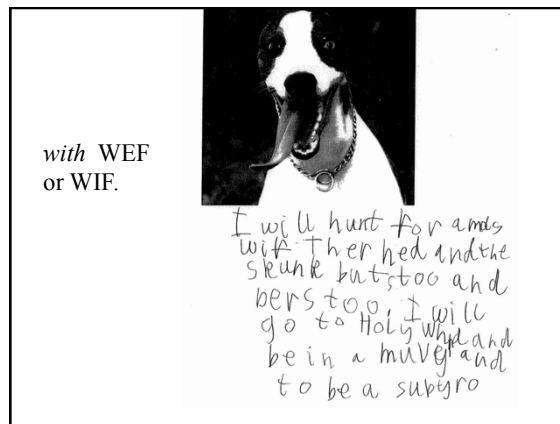 with WEF
or WIF.
I will hunt for amols
wif ther hed and the
skunk butstoo and
bers too. I will
go to Holy whd and
be in a muvey and
to be a supyro